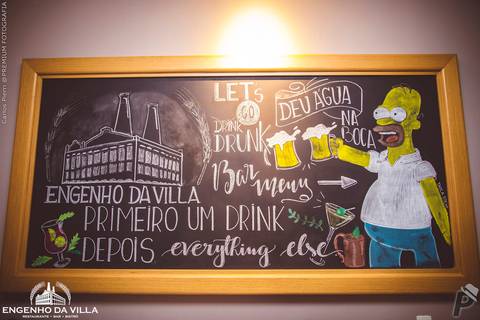 Carlos Pierri @PREMIUM FOTOGRAFIA
LETS
GO
DRINK
DRUNK
Bar
menu
DEU ÁGUA
NA
BOCA
ENGENHO DA VILLA
PRIMEIRO UM DRINK
DEPOIS everything else
ENGENHO DA VILLA
RESTAURANTE • BAR • BISTRO